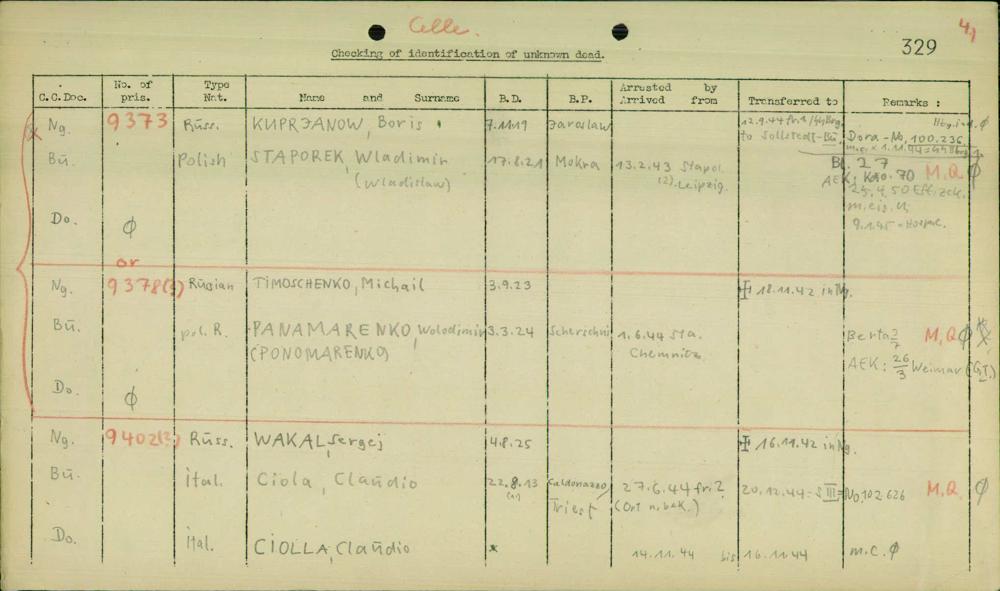 Celle.
4,
329
Checking of identification of unknown dead.
C.C.Doc. No. of pris. Type Nat. Name and Surname B.D. B.P. Arrested by Arrived from Transferred to Remarks :
Ng. 9373 Rūss. KUPRJANOW, Boris 7.11.19 Jaroslaw 12.9.44
to Sollstedt-Bū Dora-No. 100.236
Bū. Polish STAPOREK, Wladimir 17.8.21 Mokra 13.2.43 Stapol. 27 M.Q. ϕ
(Wladislaw) Leipzig. AEK: Kto. 70
25.4.50 Eff.zck.
9.1.45
Do. ϕ
or
Ng. 9378(?) Rūssian TIMOSCHENKO, Michail 3.9.23 18.11.42 in Ng.
Bū. pol. R. PANAMARENKO, Wolodimir 3.3.24 Scherschni 1.6.44 Sta. Berta 2/7 M.Q ϕ
(PONOMARENKO) Chemnitz AEK: 26/3 Weimar (G.T.)
Do. ϕ
Ng. 9402(?) Rūss. WAKAL, Sergej 4.8.25 16.11.42 in Ng.
Bū. ital. Ciola, Claūdio 22.8.13 Caldonazzo/ 27.6.44 fr. ? 20.12.44 = S III = No. 102.626 M.Q. ϕ
Triest (Ort n. bek.)
Do. ital. CIOLLA, Claūdio x 14.11.44 bis 16.11.44 m.c. ϕ